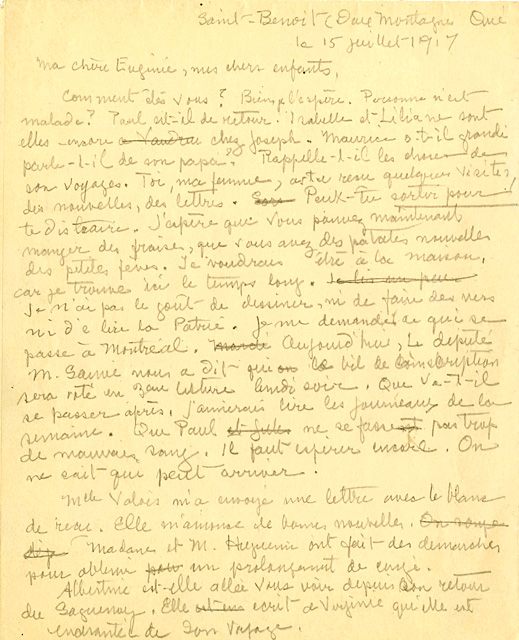 Saint-Benoit (Deux Montagnes Qué
le 15 juillet 1917
Ma chère Eugénie, mes chers enfants,
Comment êtes vous? Bien, je l'espère. Personne n'est
malade? Paul est-il de retour. Isabelle et Liliane sont
elles encore à Vaudreu chez Joseph. Maurice a-t-il grandi
parle-t-il de son papa? Rappelle-t-il les choses de
son voyages. Toi, ma femme, as-tu reçu quelques visites,
des nouvelles, des lettres. Peux-tu sortir pour
te distraire. J'espère que vous pouvez maintenant
manger des fraises, que vous avez des patates nouvelles
des petites fèves. Je voudrais être à la maison,
car je trouve ici le temps long. Je lis un peu
Je n'ai pas le goût de dessiner, ni de faire des vers
ni de lire la Patrie. Je me demande ce qui se
passe à Montréal. Mardi Aujourd'hui, Le député
M. Sauvé nous a dit que le bil de conscription
sera voté en 3eme lecture lundi soir. Que va-t-il
se passer après. j'aimerais lire les journeaux de la
semaine. Que Paul et Jules ne se fasse pas trop
de mauvais sang. Il faut espérer encore. On
ne sait que peut arriver.
Melle Valois m'a envoyé une lettre avec le blanc
de reçu. Elle m'annonce de bonnes nouvelles.
Madame et M. Huguenin ont fait des démarches
pour obtenir pour un prolongement de congé.
Albertine est-elle allée vous voir depuis son retour
du Saguenay. Elle écrit à Virginie qu'elle est
enchantée de son voyage.